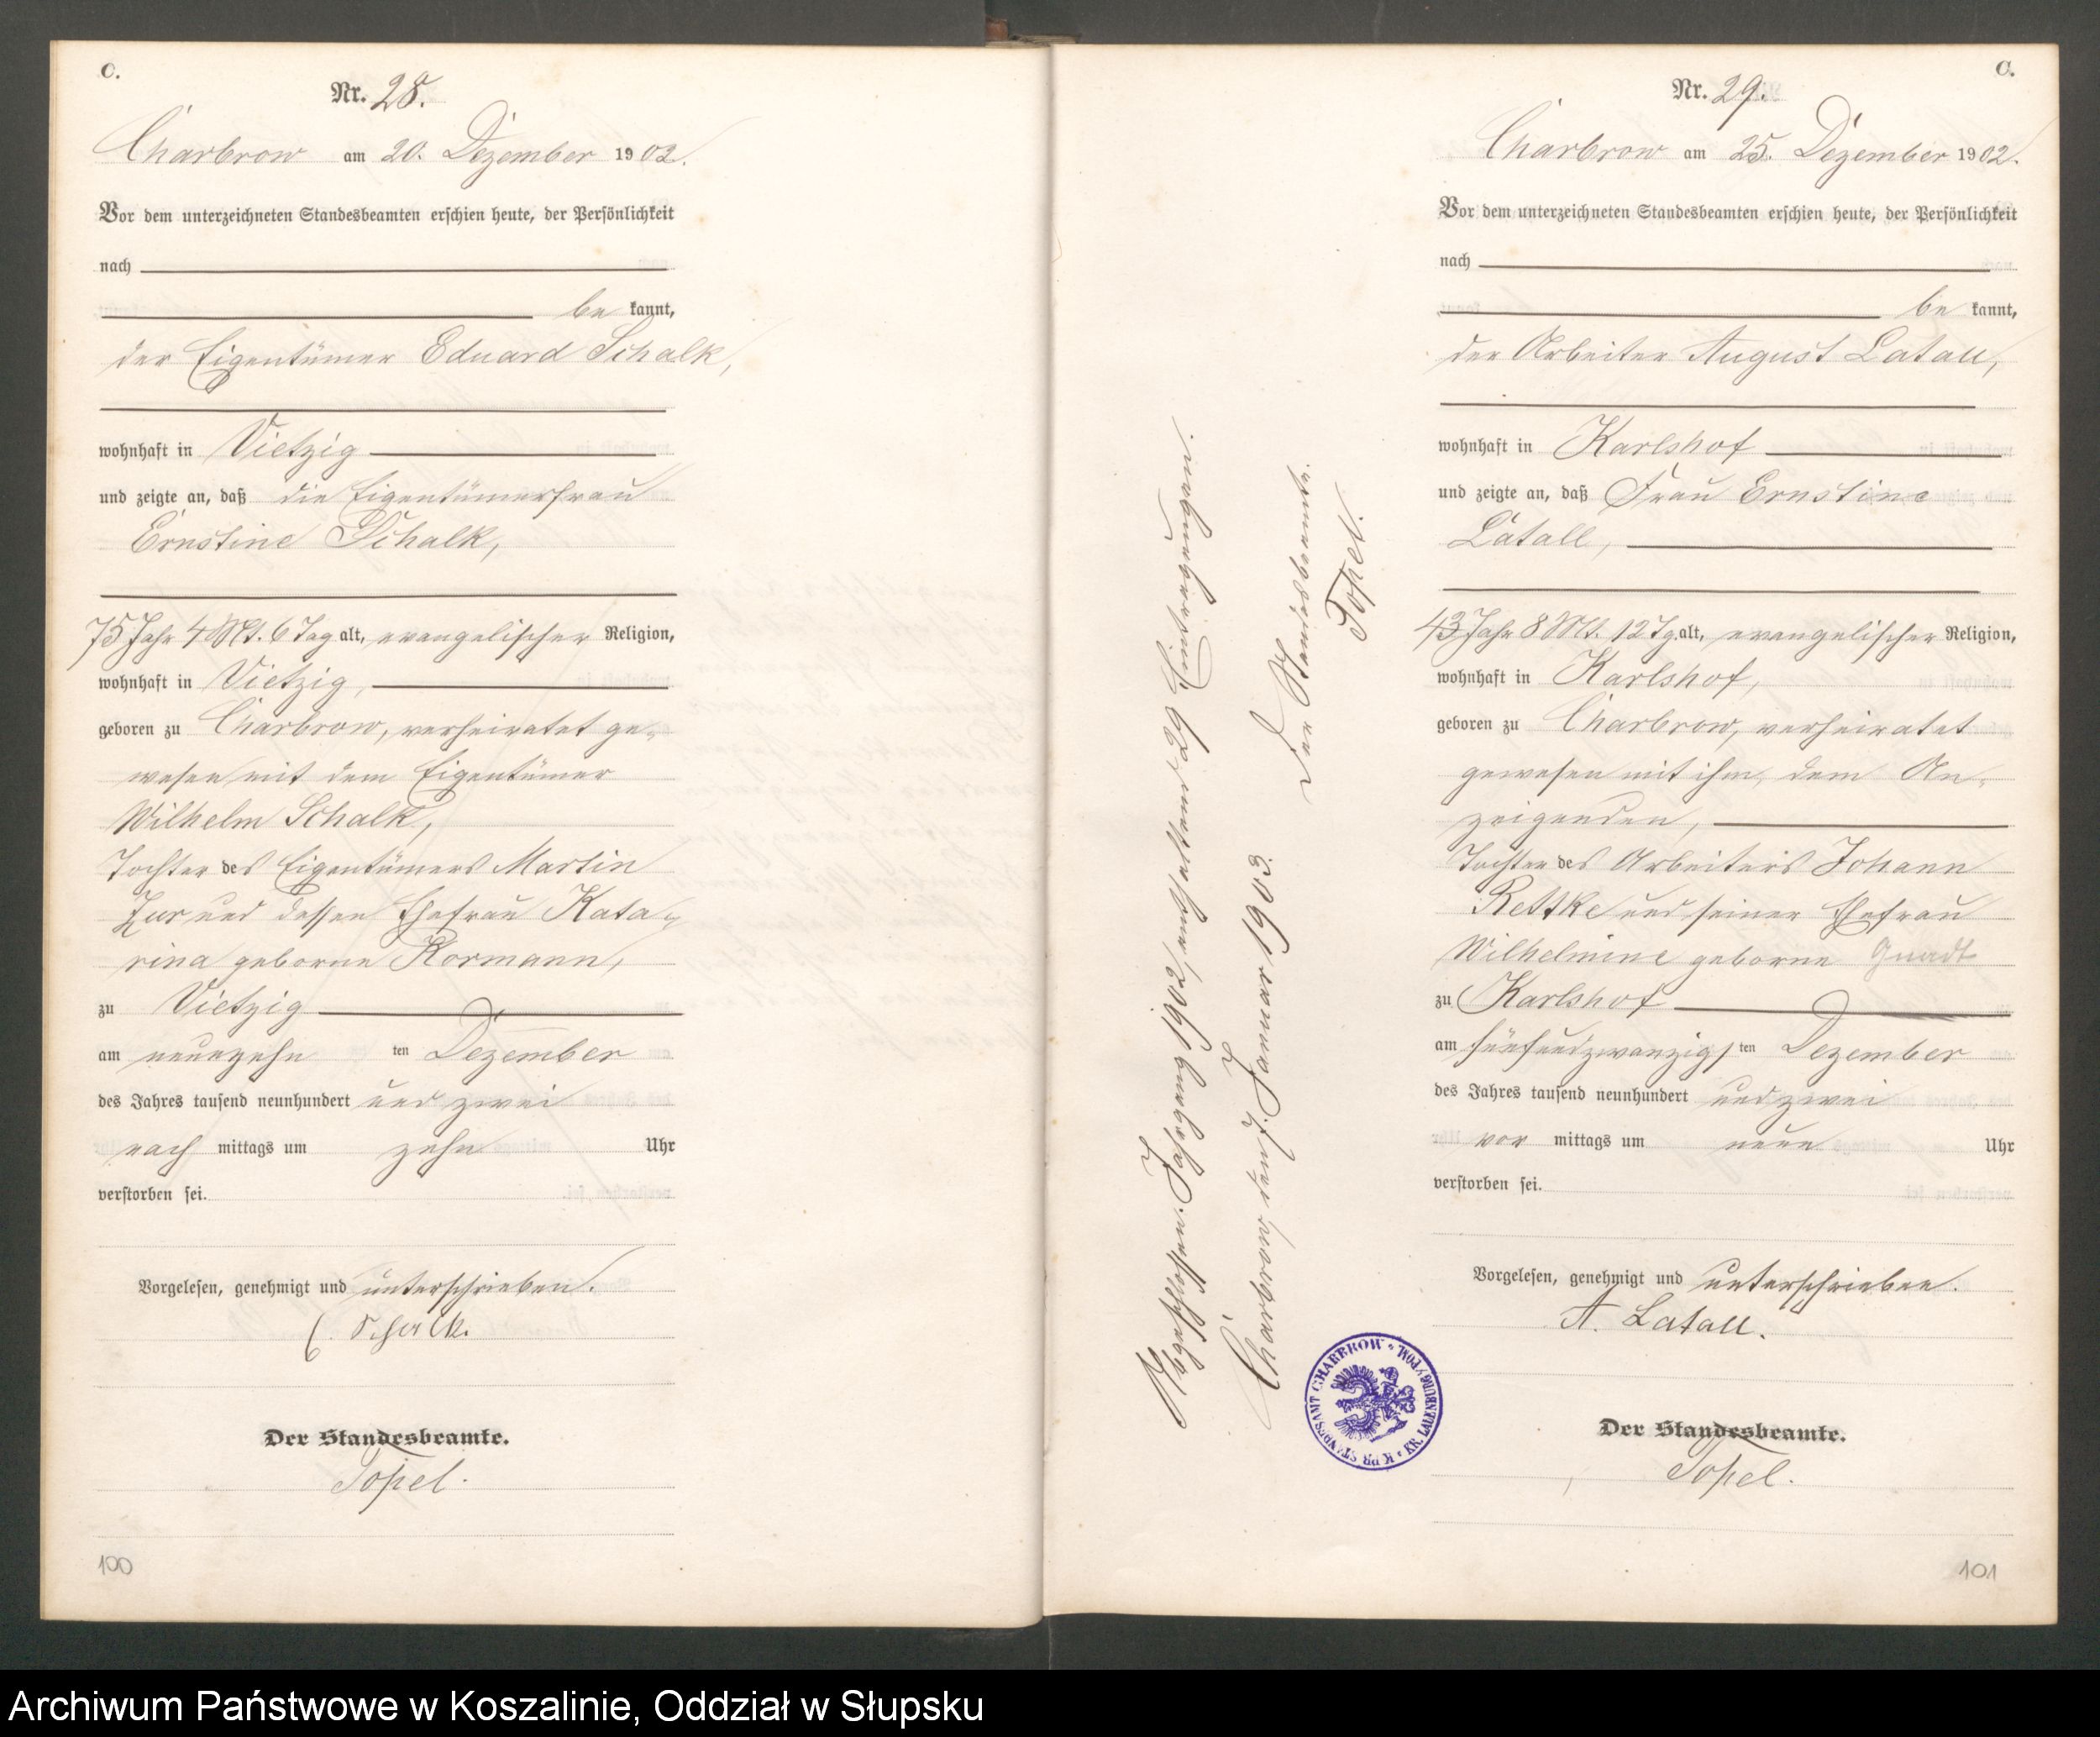 C.
Nr. 28.
Charbrow am 20. Dezember 1902.
Vor dem unterzeichneten Standesbeamten erschien heute, der Persönlichkeit
nach
be kannt,
der Eigentümer Eduard Schalk,
wohnhaft in Vietzig
und zeigte an, daß die Eigentümerfrau
Ernstine Schalk,
75 Jahr 4 Mt. 6 Tag alt, evangelischer Religion,
wohnhaft in Vietzig,
geboren zu Charbrow, verheiratet ge-
wesen mit dem Eigentümer
Wilhelm Schalk,
Tochter des Eigentümers Martin
und dessen Ehefrau Kata-
rina geborne Kormann,
zu Vietzig
am neunzehn ten Dezember
des Jahres tausend neunhundert und zwei
nach mittags um zehn Uhr
verstorben sei.
Vorgelesen, genehmigt und unterschrieben.
E. Schalk.
Der Standesbeamte.
Topel.
100
Abgeschlossen. Jahrgang 1902, enthaltend 29 Eintragungen.
Charbrow, den 7. Januar 1903.
Der Standesbeamte.
Topel.
K. PR. STANDESAMT CHARBROW * KR. LAUENBURG I/POM.
C.
Nr. 29.
Charbrow am 25. Dezember 1902.
Vor dem unterzeichneten Standesbeamten erschien heute, der Persönlichkeit
nach
be kannt,
der Arbeiter August Latall,
wohnhaft in Karlshof
und zeigte an, daß Frau Ernstine
Latall,
43 Jahr 8 Mt. 12 Tg. alt, evangelischer Religion,
wohnhaft in Karlshof,
geboren zu Charbrow, verheiratet
gewesen mit ihm, dem An-
zeigenden,
Tochter des Arbeiters Johann
Rettke und seiner Ehefrau
Wilhelmine geborne
zu Karlshof
am fünfundzwanzigsten Dezember
des Jahres tausend neunhundert und zwei
vor mittags um neun Uhr
verstorben sei.
Vorgelesen, genehmigt und unterschrieben.
A. Latall.
Der Standesbeamte.
Topel.
101
Archiwum Państwowe w Koszalinie, Oddział w Słupsku